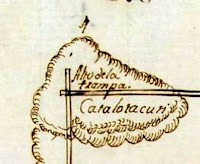 Alto de la
trampa.
Catalotacun